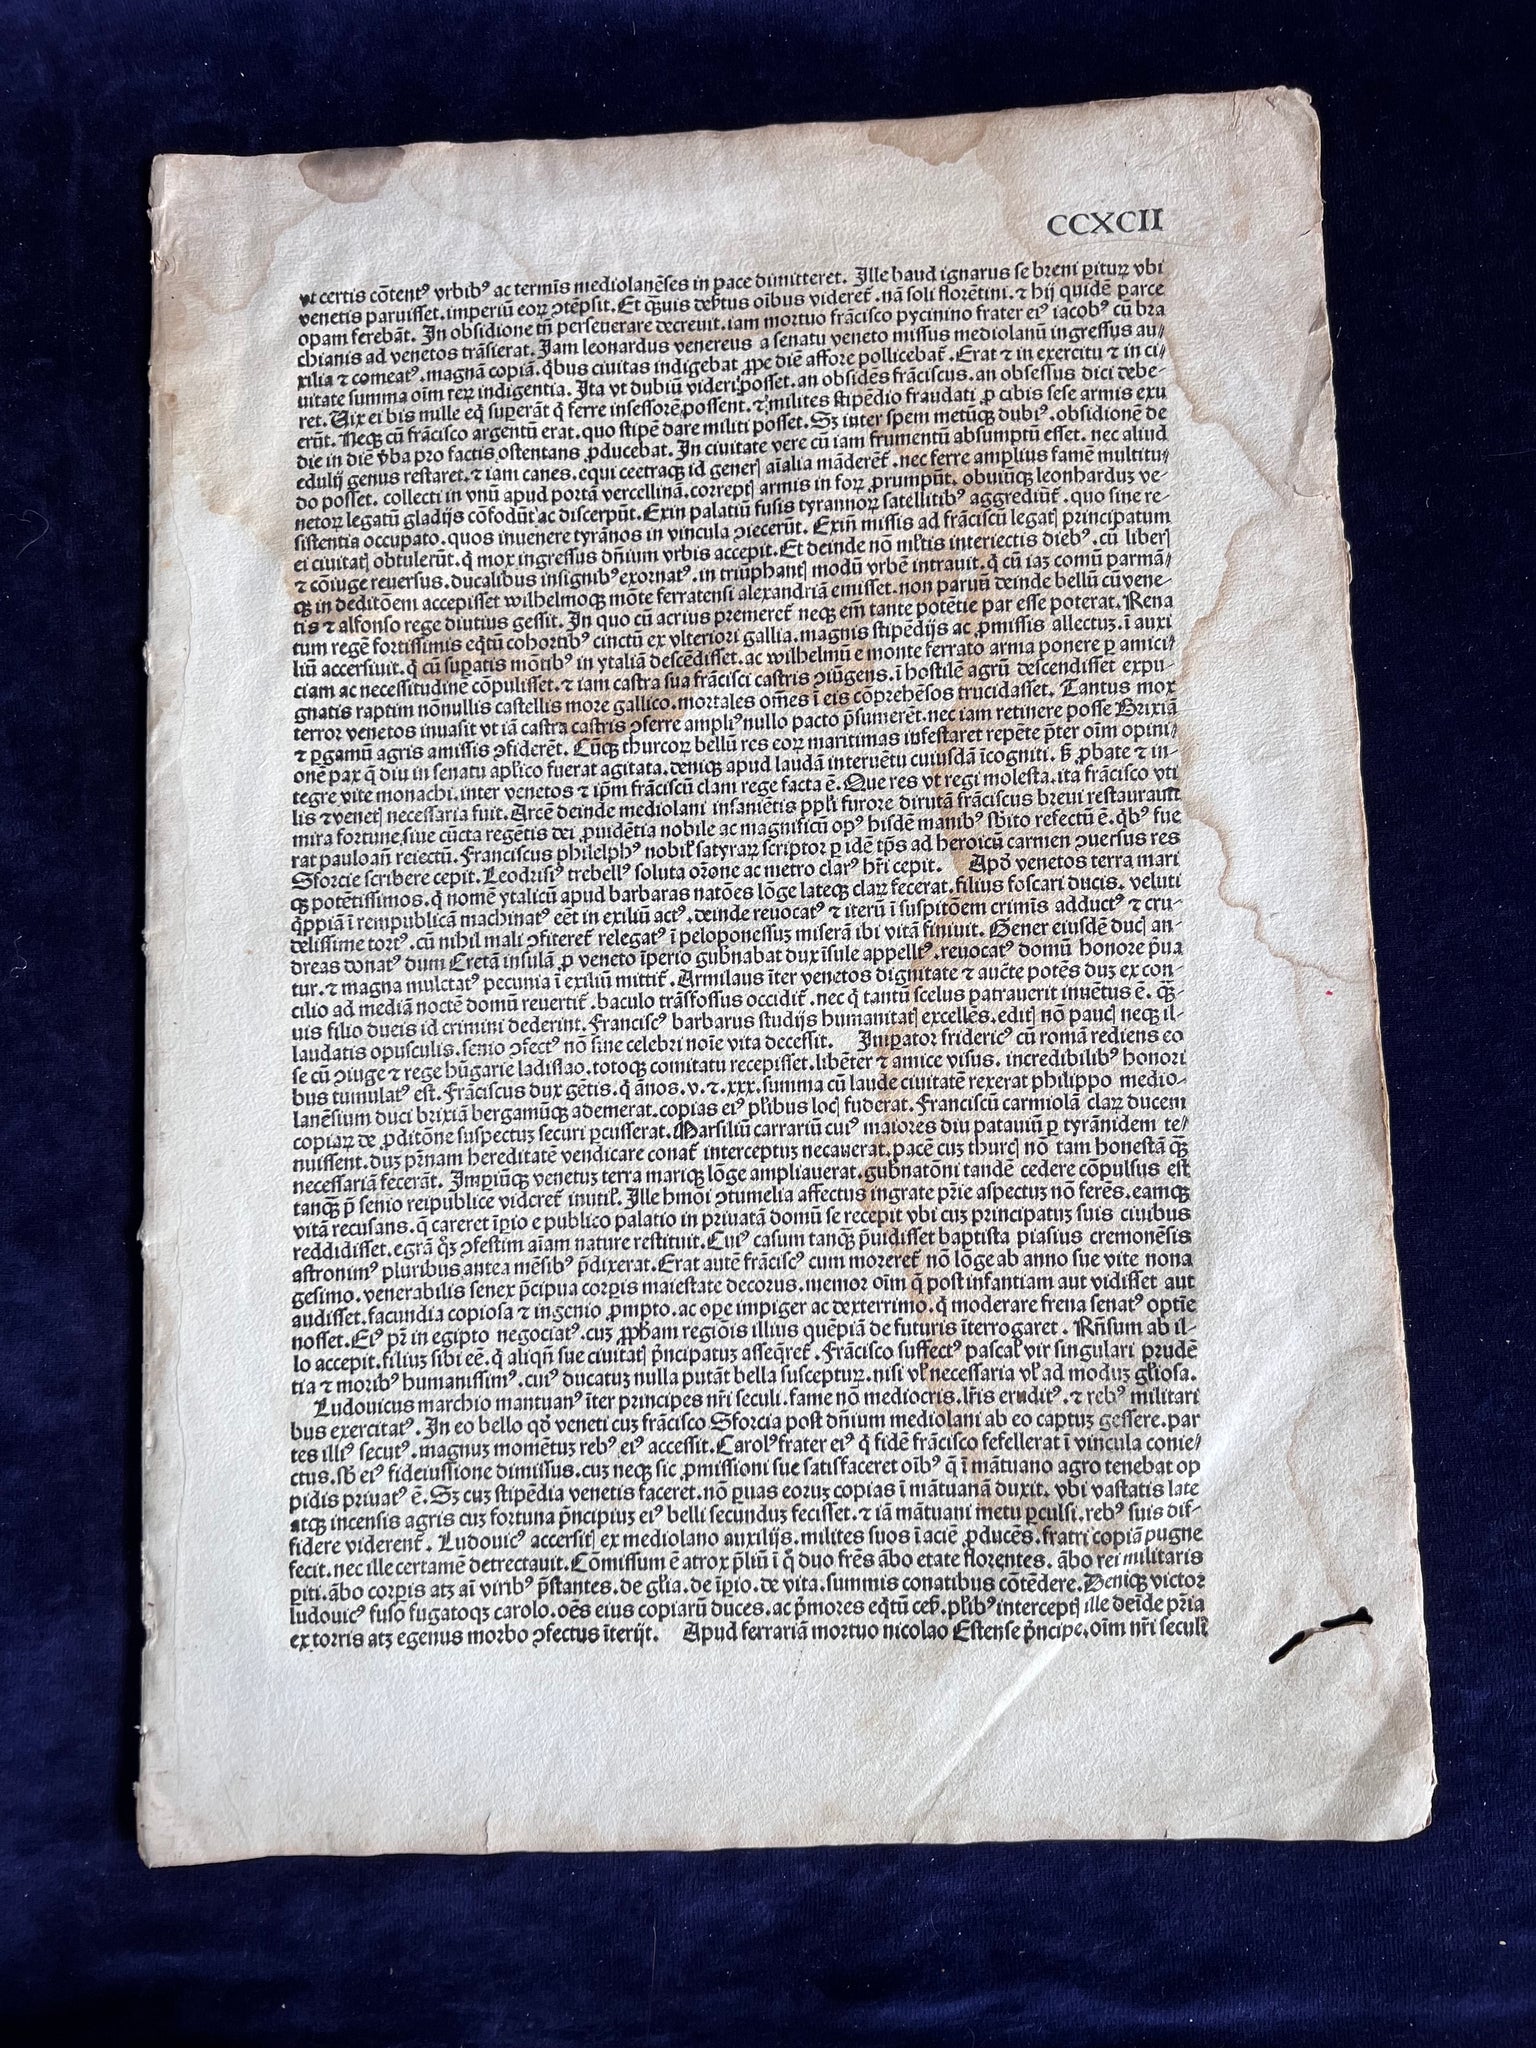 CCXCII
vt certis cōtentꝰ vrbibꝰ ac termīs mediolanēses in pace dimitteret. Ille haud ignarus se breui ꝑiturꝝ vbi
venetis paruisset. imperiū eorꝝ ꝯtēpsit. Et qᷓuis dep̄tus oībus videret᷑. nā soli florētini. ⁊ hij quidē parce
opam ferebāt. In obsidione tn̄ perseuerare decreuit. iam mortuo frācisco pycinino frater eiꝰ iacobꝰ cū bra
chianis ad venetos trāsierat. Iam leonardus venereus a senatu veneto missus mediolanū ingressus au/
xilia ⁊ comeatꝰ. magnā copiā. qͥbus ciuitas indigebat ꝓpe diē affore pollicebat᷑. Erat ⁊ in exercitu ⁊ in ci/
uitate summa oīm rerꝝ indigentia. Ita vt dubiū videri posset. an obsidēs frāciscus. an obsessus dici debe-
ret. Uix ei bis mille eqͥ superāt qͥ ferre insessorē possent. ⁊ milites stipēdio fraudati ꝓ cibis sese armis exu
erūt. Neqꝫ cū frācisco argentū erat. quo stipē dare militi posset. Sꝫ inter spem metūqꝫ dubiꝰ. obsidionē de
die in diē v̄ba pro factis ostentans ꝓducebat. In ciuitate vere cū iam frumentū absumptū esset. nec aliud
edulij genus restaret. ⁊ iam canes. equi ceetraqꝫ id generꝭ aīalia māderēt. nec ferre amplius famē multitu
do posset. collecti in vnū apud portā vercellinā. correptꝭ armis in forꝝ ꝓrumpūt. obuiūqꝫ leonharduꝫ ve-
netorꝝ legatū gladijs cōfodūt ac discerpūt. Exin palatiū fusis tyrannorꝝ satellitibꝰ aggrediūt᷑. quo sine re-
sistentia occupato. quos inuenere tyrānos in vincula ꝯiecerūt. Exin̄ missis ad frāciscū legatꝭ principatum
ei ciuitatꝭ obtulerūt. qͥ mox ingressus dn̄ium vrbis accepit. Et deinde nō ml̄tis interiectis diebꝰ. cū liberꝭ
⁊ cōiuge reuersus. ducalibus insignibꝰ exornatꝰ. in triūphantꝭ modū vrbē intrauit. qͥ cū iaꝫ comū parmā/
qꝫ in deditōem accepisset wilhelmoqꝫ mōte ferratensi alexandriā emisset. non paruū deinde bellū cū vene-
tis ⁊ alfonso rege diutius gessit. In quo cū acrius premeret᷑ neqꝫ eīn tante potētie par esse poterat. Rena
tum regē fortissimis eqͥtū cohortibꝰ cinctū ex vlteriori gallia. magnis stipēdijs ac ꝓmissis allectuꝫ. ī auxi
liū accersiuit. qͥ cū supatis mōtibꝰ in ytaliā descēdisset. ac wilhelmū e monte ferrato arma ponere ꝑ amici/
ciam ac necessitudinē cōpulisset. ⁊ iam castra sua frācisci castris ꝯiūgens. ī hostilē agrū descendisset expu-
gnatis raptim nōnullis castellis more gallico. mortales om̄es ī eis cōprehēsos trucidasset. Tantus mox
terror venetos inuasit vt iā castra castris ꝯferre ampliꝰ nullo pacto p̄sumerēt. nec iam retinere posse Brixiā
⁊ ꝑgamū agris amissis ꝯfiderēt. Cūqꝫ thurcorꝝ bellū res eorꝝ maritimas infestaret repēte p̄ter oīm opini/
onē pax qͣ diu in senatu apl̄ico fuerat agitata. deniqꝫ apud laudā interuētu cuiusdā īcogniti. sꝫ ꝓbate ⁊ in-
tegre vite monachi. inter venetos ⁊ ip̄m frāciscū clam rege facta ē. Que res vt regi molesta. ita frācisco vti
lis ⁊ venetꝭ necessaria fuit. Arcē deinde mediolani insaniētis ppl̄i furore dirutā frāciscus breui restaurauit
mira fortune siue cūcta regētis dei ꝓuidētia nobile ac magnificū opꝰ hisdē manibꝰ sb̄ito refectū ē. qͥbꝰ fue
rat paulo an̄ reiectū. Franciscus philelphꝰ nobil̓ satyrarꝝ scriptor ꝑ idē tp̄s ad heroicū carmen ꝯuersus res
Sforcie scribere cepit. Leodrisiꝰ trebellꝰ soluta or̄one ac metro clarꝰ hr̄i cepit. Apd̓ venetos terra mari
qꝫ potētissimos. qͥ nomē ytalicū apud barbaras natōes lōge lateqꝫ clarꝝ fecerat. filius foscari ducis. veluti
qͥppiā ī rempublicā machinatꝰ eēt in exiliū actꝰ. deinde reuocatꝰ ⁊ iterū ī suspitōem crimīs adductꝰ ⁊ cru-
delissime tortꝰ. cū nihil mali ꝯfiteret᷑ relegatꝰ ī peloponessuꝫ miserā ibi vitā finiuit. Gener eiusdē ducꝭ an-
dreas donatꝰ dum Cretā insulā ꝓ veneto īperio gub̄nabat dux īsule appellꝰ. reuocatꝰ domū honore p̄ua
tur. ⁊ magna mulctatꝰ pecunia ī exiliū mittit᷑. Armilaus īter venetos dignitate ⁊ auc̄te potēs duꝫ ex con-
cilio ad mediā noctē domū reuertit᷑. baculo trāsfossus occidit᷑. nec qͥ tantū scelus patrauerit inuētus ē. qᷓꝫ-
uis filio ducis id crimini dederint. Franciscꝰ barbarus studijs humanitatꝭ excellēs. editꝭ nō paucꝭ neqꝫ il-
laudatis opusculis. senio ꝯfectꝰ nō sine celebri noīe vita decessit. Imꝑator fridericꝰ cū romā rediens eo
se cū ꝯiuge ⁊ rege hūgarie ladislao. totoqꝫ comitatu recepisset. libēter ⁊ amice visus. incredibilibꝰ honori
bus tumulatꝰ est. Frāciscus dux gētis. qͥ ānos. v. ⁊. xxx. summa cū laude ciuitatē rexerat philippo medio-
lanēsium duci brixiā bergamūqꝫ ademerat. copias eiꝰ pl̄ibus locꝭ fuderat. Franciscū carmiolā clarꝝ ducem
copiarꝝ de ꝓditōne suspectuꝫ securi ꝑcusserat. Marsiliū carrariū cuiꝰ maiores diu patauiū ꝑ tyrānidem te/
nuissent. duꝫ pr̄nam hereditatē vendicare conat᷑ interceptuꝫ necauerat. pacē cuꝫ thurcꝭ nō tam honestā qᷓꝫ
necessariā fecerāt. Imꝑiūqꝫ venetuꝫ terra mariqꝫ lōge ampliauerat. gub̄natōni tandē cedere cōpulsus est
tanqᷓꝫ p̄ senio reipublice videret᷑ inutil̓. Ille hmōi ꝯtumelia affectus ingrate pr̄ie aspectuꝫ nō ferēs. eamqꝫ
vitā recusans. qͣ careret īꝑio e publico palatio in priuatā domū se recepit vbi cuꝫ principatuꝫ suis ciuibus
reddidisset. egrā qͦꝫ ꝯfestim aīam nature restituit. Cuiꝰ casum tanqᷓꝫ p̄uidisset baptista piasius cremonēsis
astronimꝰ pluribus antea mēsibꝰ p̄dixerat. Erat autē frāciscꝰ cum moreret᷑ nō lōge ab anno sue vite nona
gesimo. venerabilis senex p̄cipua corꝑis maiestate decorus. memor oīm qͥ post infantiam aut vidisset aut
audisset. facundia copiosa ⁊ ingenio ꝓmpto. ac ope impiger ac dexterrimo. qͥ moderare frena senatꝰ optīe
nosset. Eiꝰ pr̄ in egipto negociatꝰ. cuꝫ ꝓph̄am regiōis illius quēpiā de futuris īterrogaret. Rn̄sum ab il-
lo accepit. filiuꝫ sibi eē. qͥ aliqn̄ sue ciuitatꝭ p̄ncipatuꝫ asseqͥret᷑. Frācisco suffectꝰ pascal̓ vir singulari prudē
tia ⁊ moribꝰ humanissimꝰ. cuiꝰ ducatuꝫ nulla putāt bella susceptuꝝ. nisi vl̓ necessaria vl̓ ad moduꝫ gl̄iosa.
Ludouicus marchio mantuanꝰ īter principes nr̄i seculi. fame nō mediocris. lr̄is eruditꝰ. ⁊ rebꝰ militari
bus exercitatꝰ. In eo bello qd̓ veneti cuꝫ frācisco Sforcia post dn̄ium mediolani ab eo captuꝫ gessere. par
tes illiꝰ secutꝰ. magnuꝫ momētuꝫ rebꝰ eiꝰ accessit. Carolꝰ frater eiꝰ qͥ fidē frācisco fefellerat ī vincula conie/
ctus. sb̄ eiꝰ fideiussione dimissus. cuꝫ neqꝫ sic ꝓmissioni sue satisfaceret oībꝰ qͥ ī mātuano agro tenebat op
pidis priuatꝰ ē. Sꝫ cuꝫ stipēdia venetis faceret. nō ꝑuas eoruꝫ copias ī mātuanā duxit. vbi vastatis late
atqꝫ incensis agris cuꝫ fortuna p̄ncipiuꝫ eiꝰ belli secunduꝫ fecisset. ⁊ iā mātuani metu ꝑculsi. rebꝰ suis dif-
fidere viderent᷑. Ludouicꝰ accersitꝭ ex mediolano auxilijs. milites suos ī aciē ꝓducēs. fratri copiā pugne
fecit. nec ille certamē detrectauit. Cōmissum ē atrox p̄liū ī qͦ duo fr̄es ābo etate florentes. ābo rei militaris
ꝑiti. ābo corꝑis atqꝫ aī viribꝰ p̄stantes. de gl̄ia. de īꝑio. de vita. summis conatibus cōtēdere. Deniqꝫ victor
ludouicꝰ fuso fugatoqꝫ carolo. oēs eius copiarū duces. ac p̄mores eqͥtū cep̄. pl̄ibꝰ interceptꝭ ille deīde pr̄ia
extorris atqꝫ egenus morbo ꝯfectus īterijt. Apud ferrariā mortuo nicolao Estense p̄ncipe. oīm nr̄i seculi